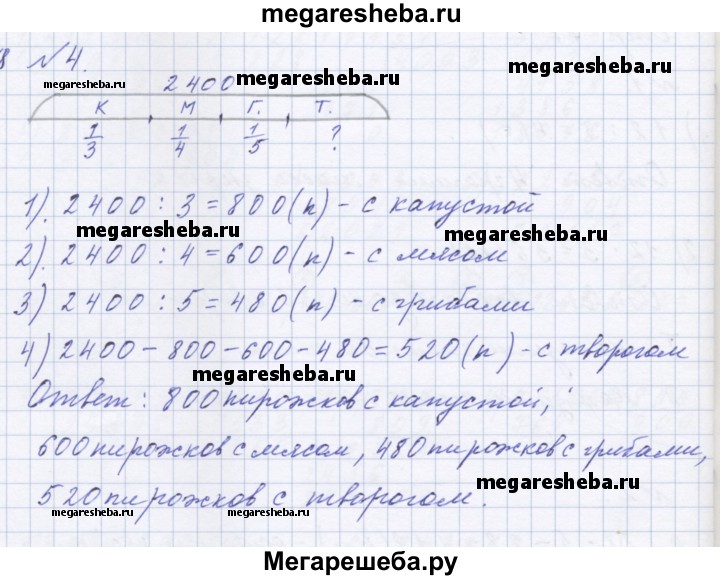 megaresheba.ru
8 №4.
megaresheba.ru 2400 megaresheba.ru
К М Г. Т.
1/3 1/4 1/5 ?
1). 2400 : 3 = 800 (п) - с капустой
megaresheba.ru megaresheba.ru
2). 2400 : 4 = 600 (п) - с мясом
3) 2400 : 5 = 480 (п) - с грибами
megaresheba.ru
4) 2400 - 800 - 600 - 480 = 520 (п) - с творогом
megaresheba.ru
Ответ: 800 пирожков с капустой,
600 пирожков с мясом, 480 пирожков с грибами,
megaresheba.ru
520 пирожков с творогом.
megaresheba.ru megaresheba.ru
Мегарешеба.ру